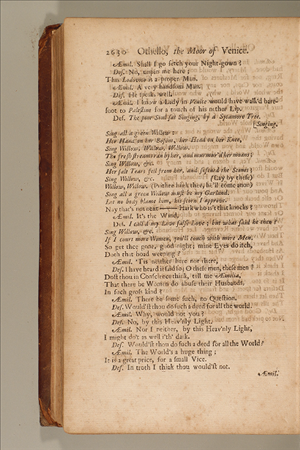 2630 Othello, the Moor of Venice.
Æmil. Shall I go fetch your Night-gown?
Des. No, unpin me here;
This Lodovico is a proper Man.
Æmil. A very handsome Man.
Des. He speaks well.
Æmil. I know a Lady in Venice would have walk'd bare-
foot to Palestine for a touch of his nether Lip.
Des. The poor Soul sat Singing, by a Sycamore Tree.
[Singing.
Sing all a green Willow:
Her Hand on her Bosom, her Head on her Knee,
Sing Willow, Willow, Willow.
The fresh streams ran by her, and murmur'd her moans;
Sing Willow, &c.
Her salt Tears fell from her, and softned the Stones;
Sing Willow, &c. (Lay by these)
Willow, Willow. (Prithee hie thee, he'll come anon)
Sing all a green Willow must be my Garland.
Let no body blame him, his scorn I approve.
Nay that's not next—Hark, who is't that knocks?
Æmil. It's the Wind.
Des. I call'd my Love false Love; but what said he then?
Sing Willow, &c.
If I court more Women, you'll couch with more Men.
So get thee gone, good night; mine Eyes do itch,
Doth that boad weeping?
Æmil. 'Tis neither here nor there.
Des. I have heard it said so; O these men, these men!
Dost thou in Conscience think, tell me Æmilia,
That there be Women do abuse their Husbands
In such gross kind?
Æmil. There be some such, no Question.
Des. Would'st thou do such a deed for all the world?
Æmil. Why, would not you?
Des. No, by this Heav'nly Light.
Æmil. Nor I neither, by this Heav'nly Light,
I might do't as well i'th' dark.
Des. Would'st thou do such a deed for all the World?
Æmil. The World's a huge thing;
It is a great price, for a small Vice.
Des. In troth I think thou would'st not.
Æmil.